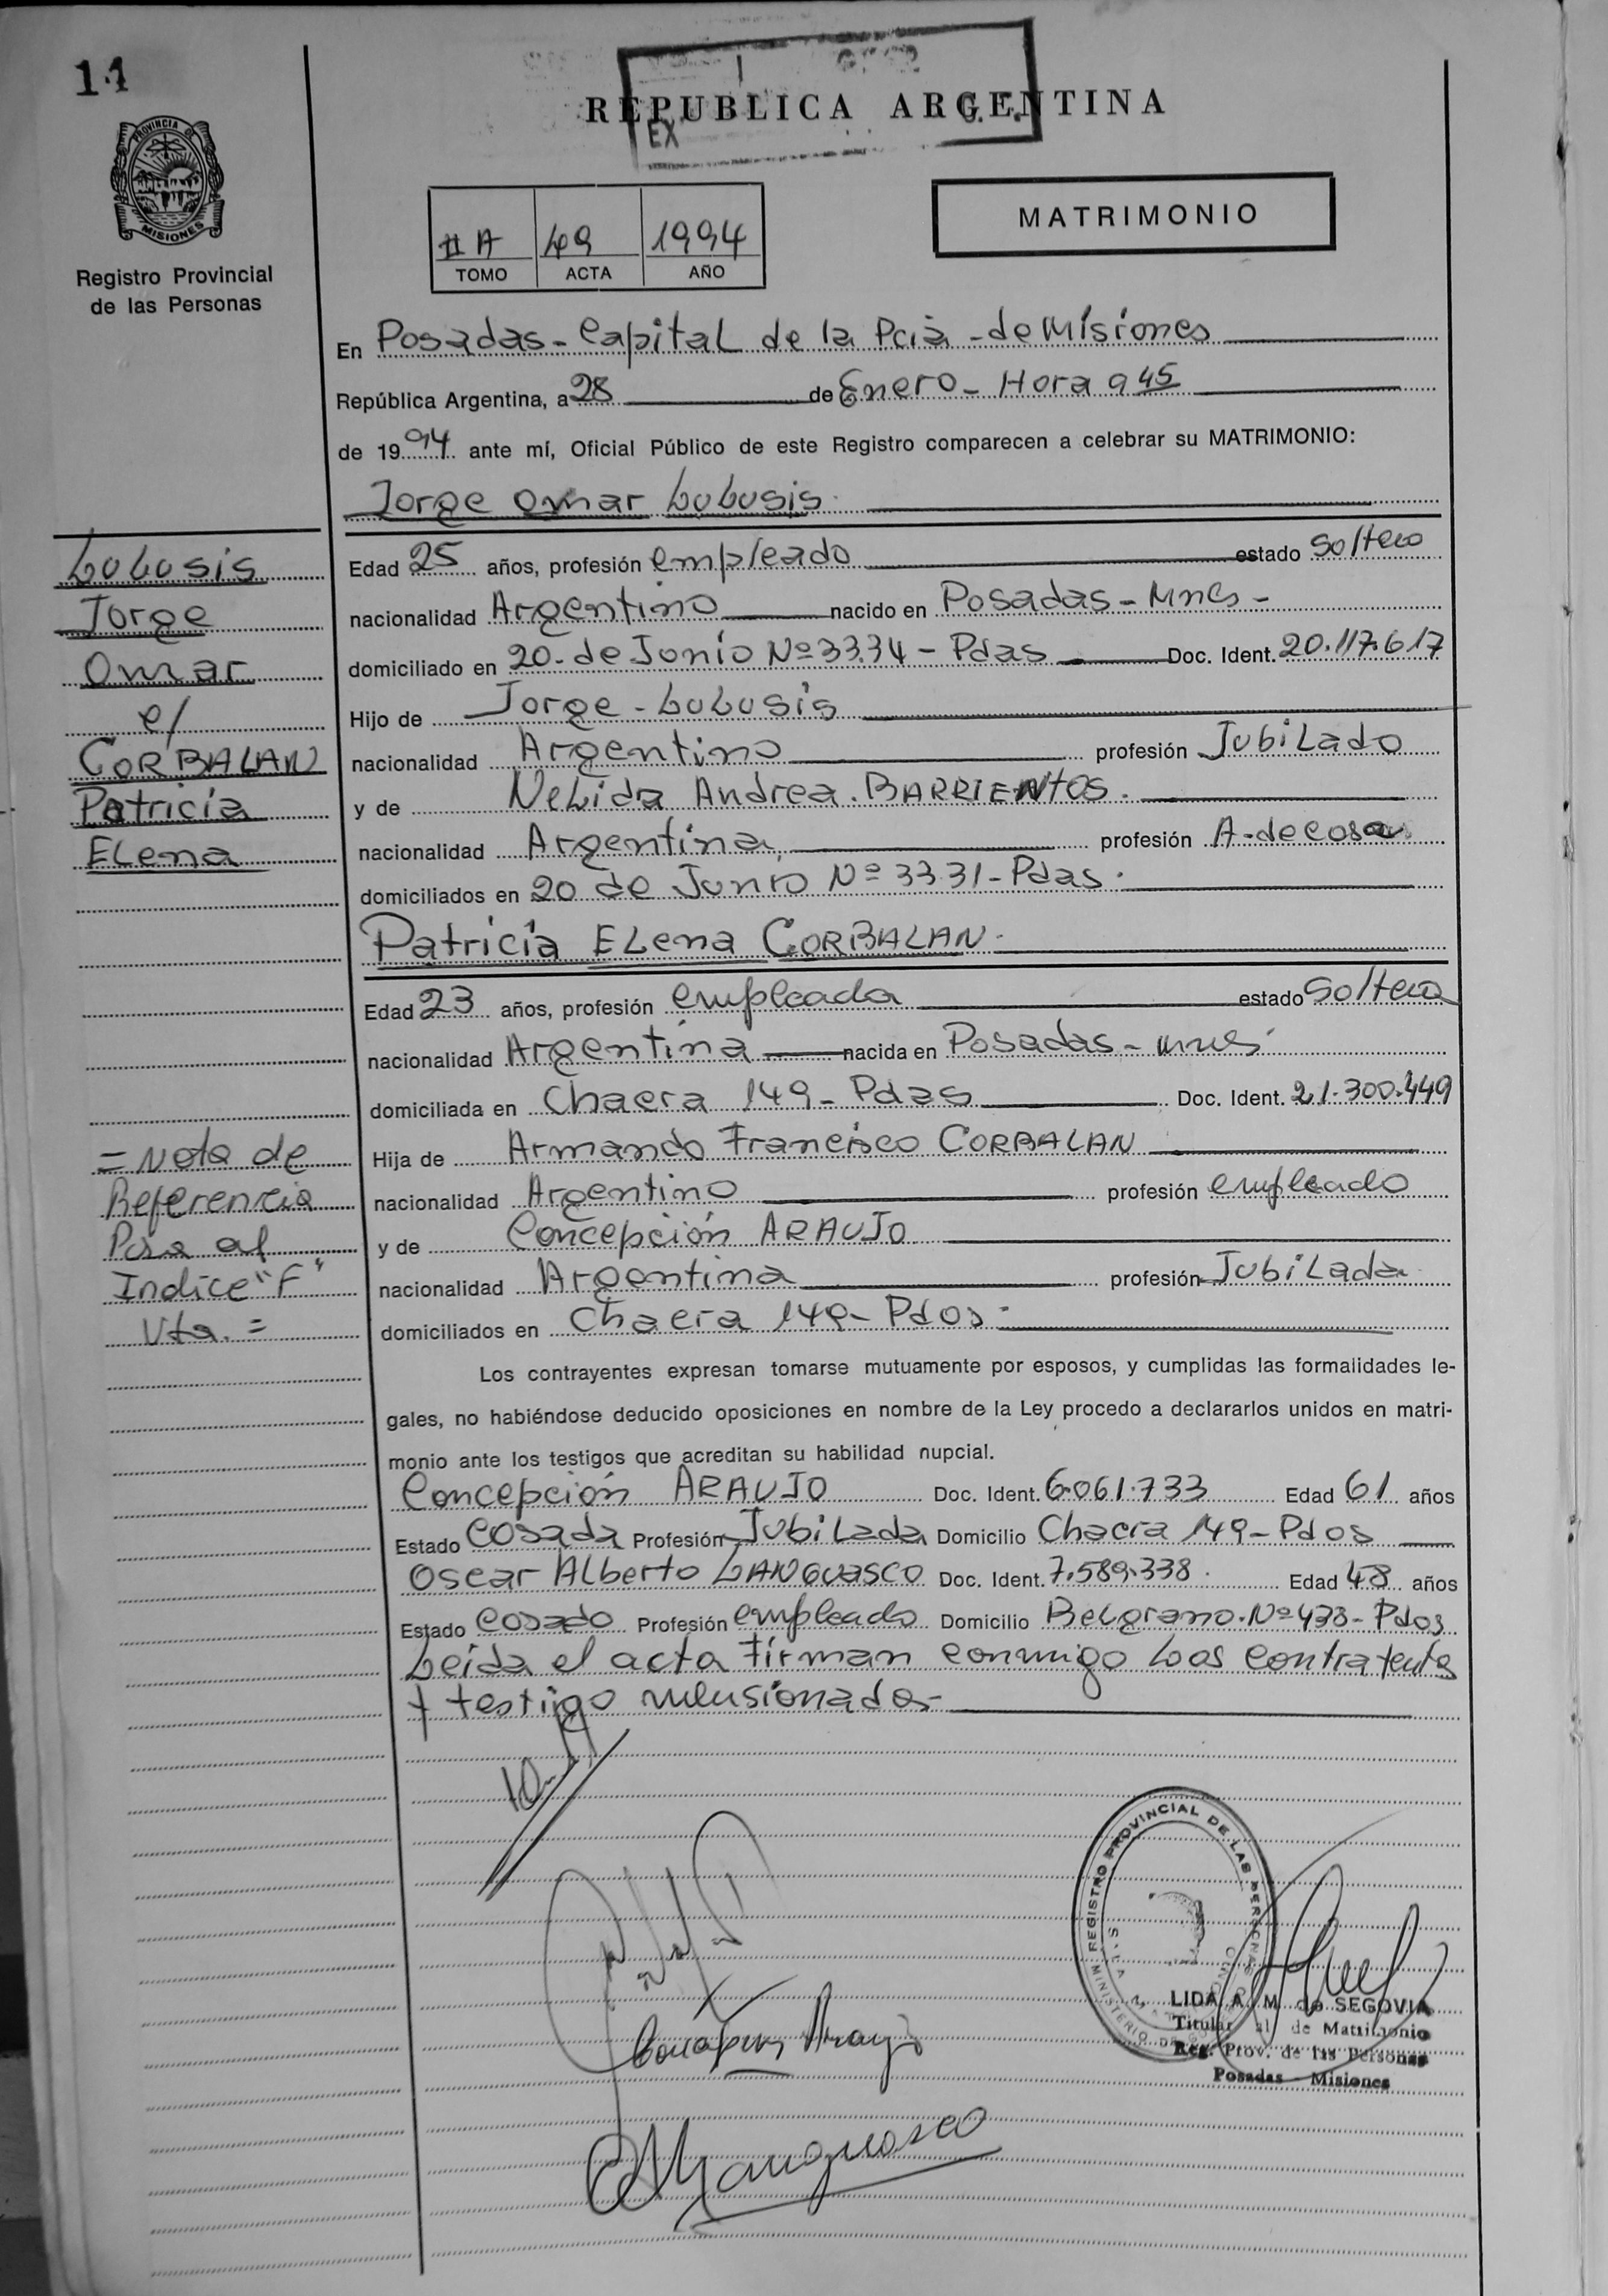 11
REPUBLICA ARGENTINA
EX
PROVINCIA DE
MISIONES
Registro Provincial
de las Personas
II A 49 1994
TOMO ACTA AÑO
MATRIMONIO
En Posadas - Capital de la Pcia - de Misiones
República Argentina, a 28 de Enero - Hora 9 45
de 1994 ante mí, Oficial Público de este Registro comparecen a celebrar su MATRIMONIO:
Jorge Omar LULUSIS.
LULUSIS
Jorge
Omar
c/
CORBALAN
Patricia
ELena
Edad 25 años, profesión empleado estado Soltero
nacionalidad Argentino nacido en Posadas - Mnes -
domiciliado en 20 - de Junio Nº 3334 - Pdas Doc. Ident. 20.117.617
Hijo de Jorge - LULUSIS
nacionalidad Argentino profesión JubiLado
y de NeLida Andrea. BARRIENTOS.
nacionalidad Argentina profesión A - de casa
domiciliados en 20 de Junio Nº 3331 - Pdas.
Patricia ELena CORBALAN.
Edad 23 años, profesión empleada estado Soltera
nacionalidad Argentina nacida en Posadas - mnes
domiciliada en Chacra 149 - Pdas Doc. Ident. 21.300.449
Hija de Armando Francisco CORBALAN
nacionalidad Argentino profesión empleado
y de Concepción ARAUJO
nacionalidad Argentina profesión JubiLada
domiciliados en Chacra 149 - Pdas -
= Nota de
Referencia
Pasa al
Indice "F"
Vta. =
Los contrayentes expresan tomarse mutuamente por esposos, y cumplidas las formalidades le-
gales, no habiéndose deducido oposiciones en nombre de la Ley procedo a declararlos unidos en matri-
monio ante los testigos que acreditan su habilidad nupcial.
Concepción ARAUJO Doc. Ident. 6.061.733 Edad 61 años
Estado Casada Profesión JubiLada Domicilio Chacra 149 - Pdas
Oscar ALberto LANGUASCO Doc. Ident. 7.589.338. Edad 48 años
Estado Casado Profesión empleado Domicilio BeLgrano. Nº 438 - Pdas
Leida el acta firman conmigo Los contrayentes
y testigo mensionados -
REGISTRO PROVINCIAL DE LAS PERSONAS
LIDA A. M. de SEGOVIA
Titular de Matrimonio
Reg. Prov. de las Personas
Posadas - Misiones